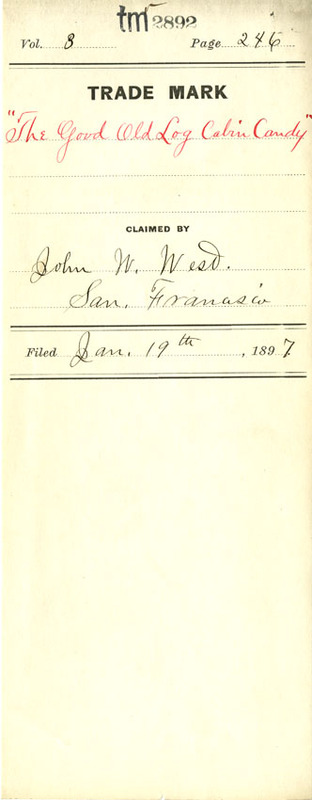 tm 2892
Vol. 8 Page 246
TRADE MARK
"The Good Old Log Cabin Candy"
CLAIMED BY
John W. West.
San. Francisco
Filed Jan. 19th, 1897.